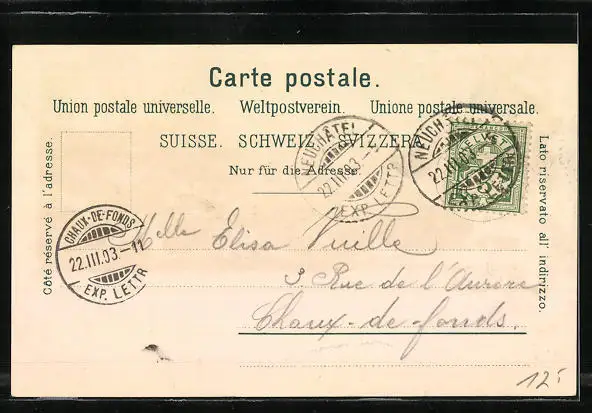 Carte postale.
Union postale universelle. Weltpostverein. Unione postale universale.
SUISSE. SCHWEIZ. SVIZZERA.
Nur für die Adresse.
Côté réservé à l'adresse.
Lato riservato all' indirizzo.
NEUCHÂTEL
22.III.03.-
EXP. LETTR
NEUCH
22.III.03
CHAUX-DE-FONDS
22.III.03.-11
EXP. LETTR
Melle Elisa Vuille
3 Rue de l'Aurore
Chaux-de-fonds.
12.-